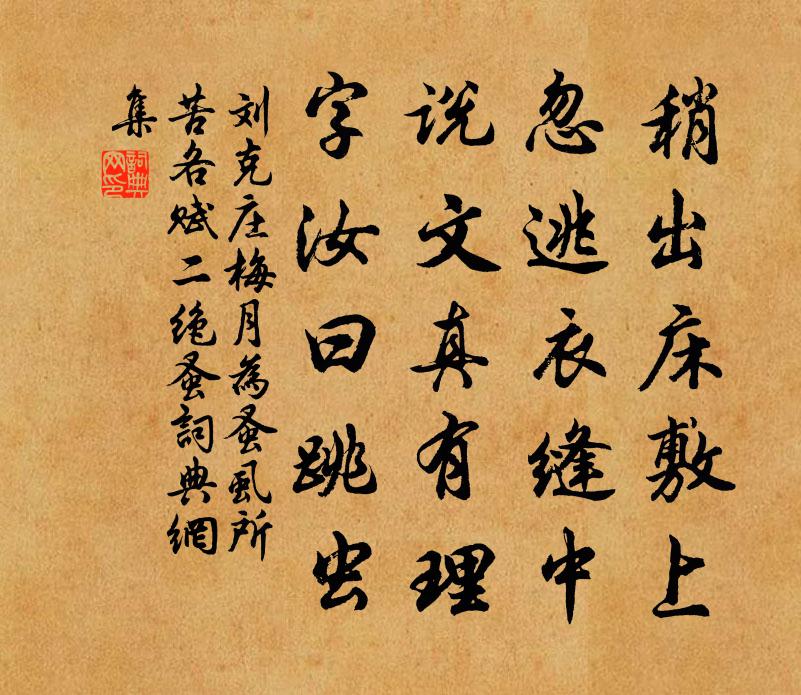 稍出床敷上
忽逃衣缝中
说文真有理
字汝曰跳虫
刘克庄梅月为蚤虱所
苦各赋二绝蚤詞典網
集
詞典
网印